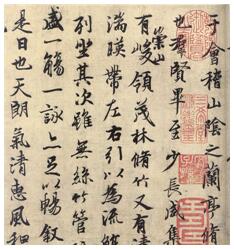 于會稽山陰之蘭亭脩
也羣賢畢至少長咸集
有崇山峻領茂林脩竹又有清
湍暎帶左右引以為流
列坐其次雖無絲竹管
盛一觴一詠亦足以暢叙
是日也天朗氣清惠風和